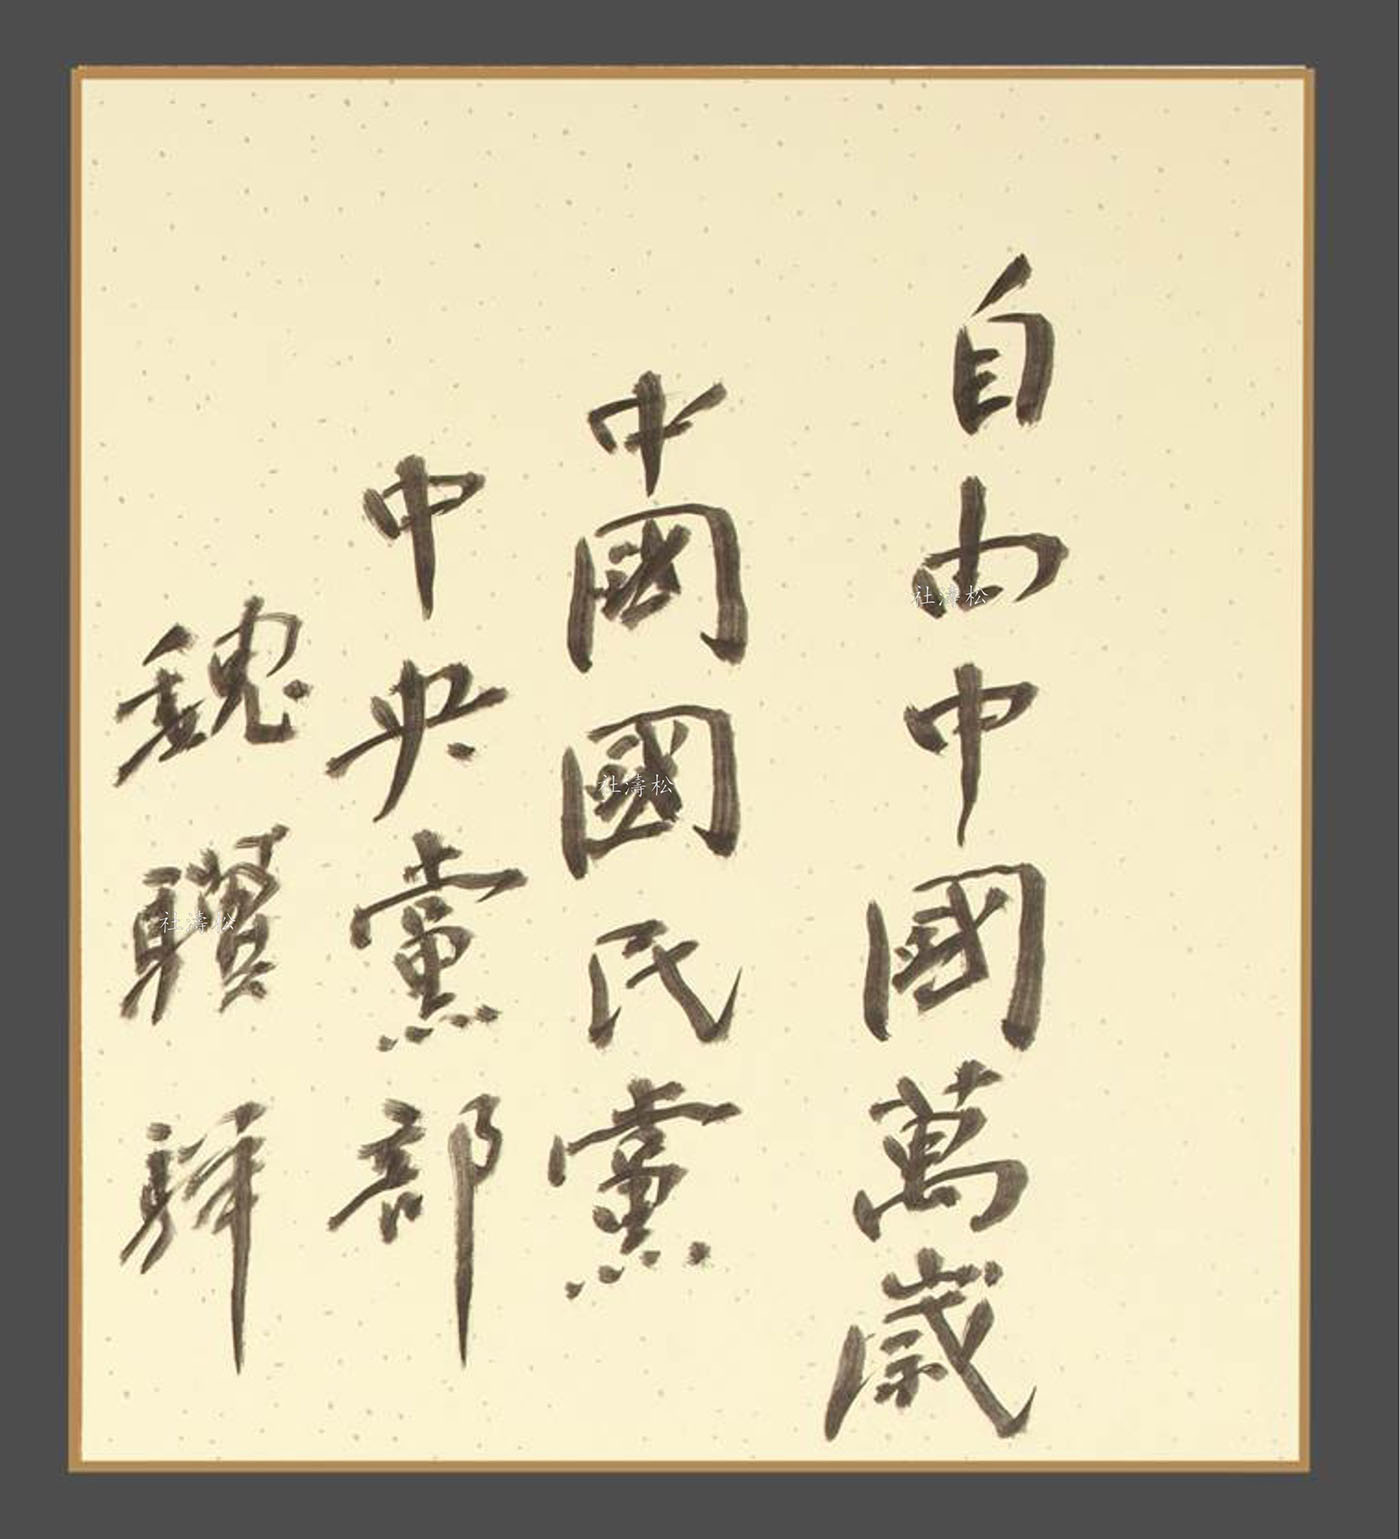 自由中國萬歲
中國國民黨
中央黨部
魏驥
松濤社
松濤社
松濤社